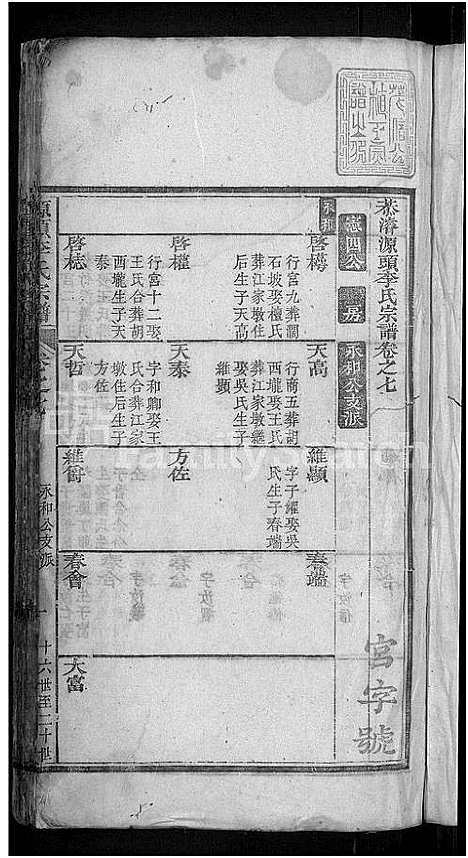 恭濬源頭李氏宗譜卷之七
忠四公 房 永和公支派
宮字號
永和
啓樗
行宮九葬澗
石坡娶檀氏
葬江家墩住
后生子天高
天高
行商五葬胡
西壠娶王氏
葬江家墩繼
娶吳氏生子
維顯
維顯
字子燿娶吳
氏生子春端
春端
啓權
行宮十二娶
王氏合葬胡
西壠生子天
泰
天泰
字和卿娶王
氏合葬江家
墩住后生子
方佐
方佐
啓梽
天哲
維爵
春會
大富
源頭李氏宗譜
卷之七
永和公支派
一
十六世至二十世
FamilySearch